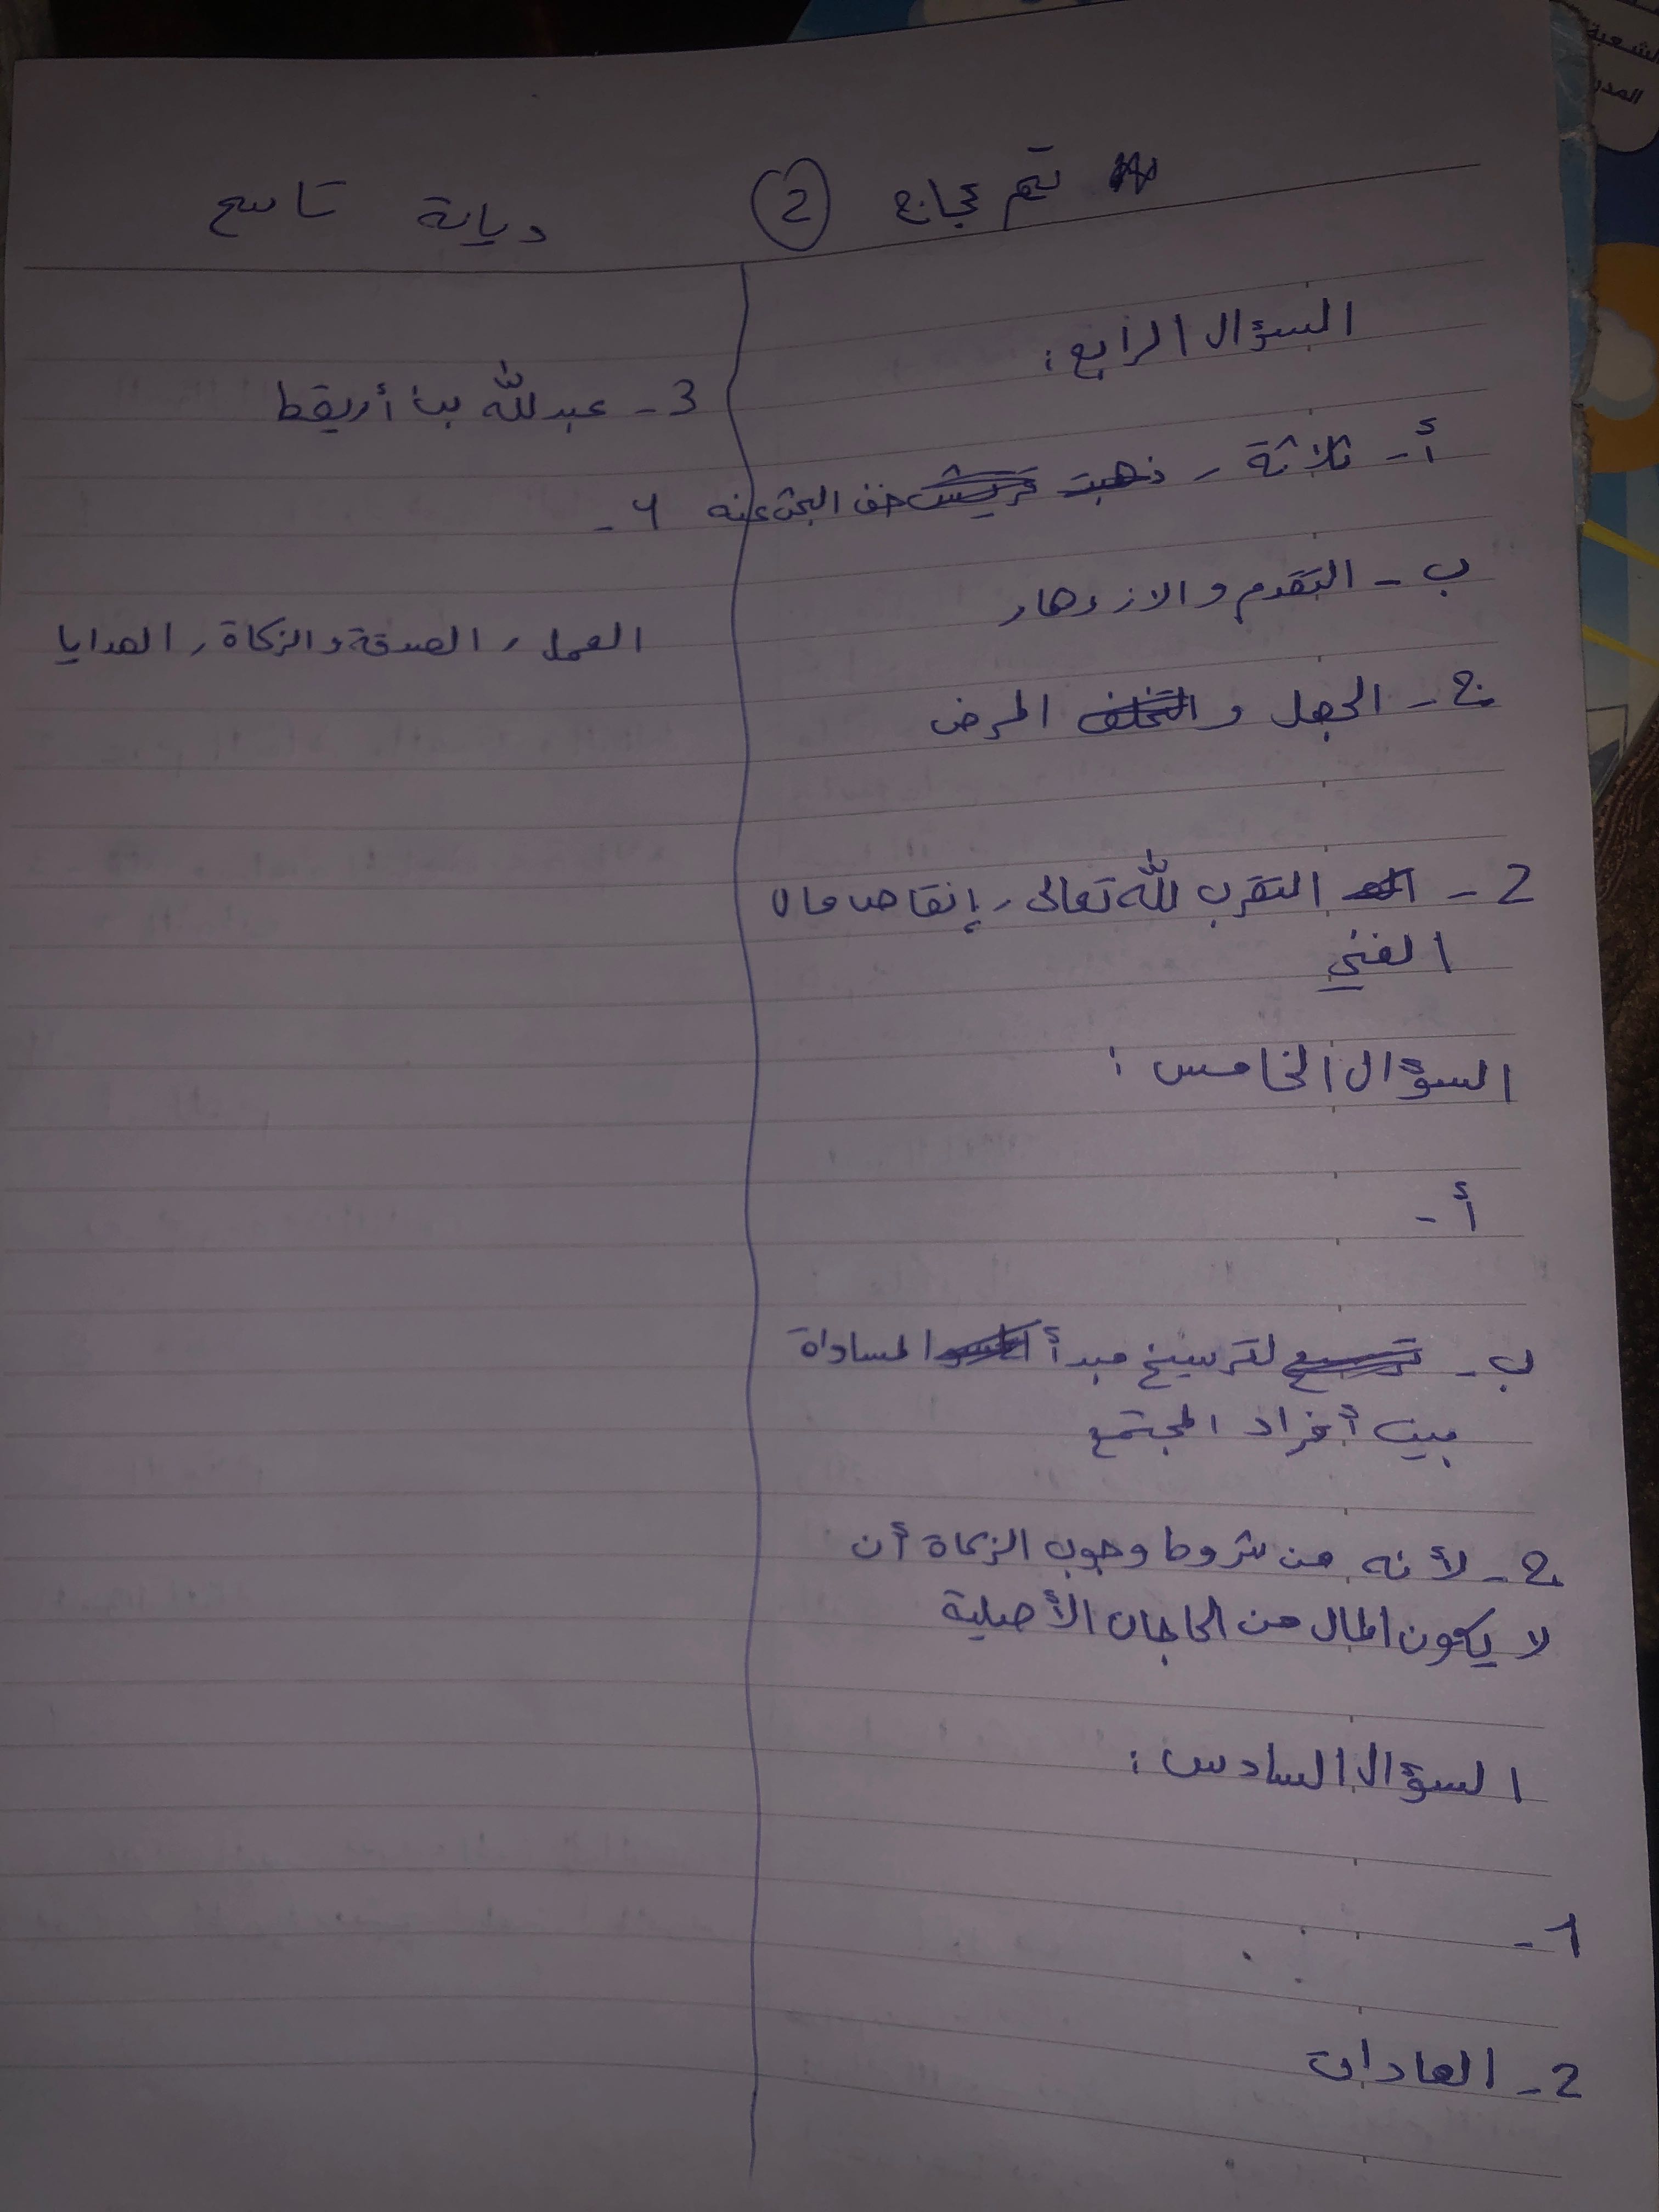 تيم عجاج (2) ديانة تاسع
السؤال الرابع:
أ- ثلاثة - ذهبت قريش خف البحث عنه
ب- التقدم والازدهار
ج- الجهل والتخلف المرض
2- التقرب لله تعالى، إنقاص مال
الغني
السؤال الخامس:
أ-
ب- ترسيع لترسيخ مبدأ المساواة
بين أفراد المجتمع
ج- لأنه من شروط وجوب الزكاة أن
لا يكون المال من الحاجات الأصلية
السؤال السادس:
1-
2- العادات
3- عبدلله بن أريقط
4-
العمل، الصدقة والزكاة، الهدايا
الشعبة
المدر